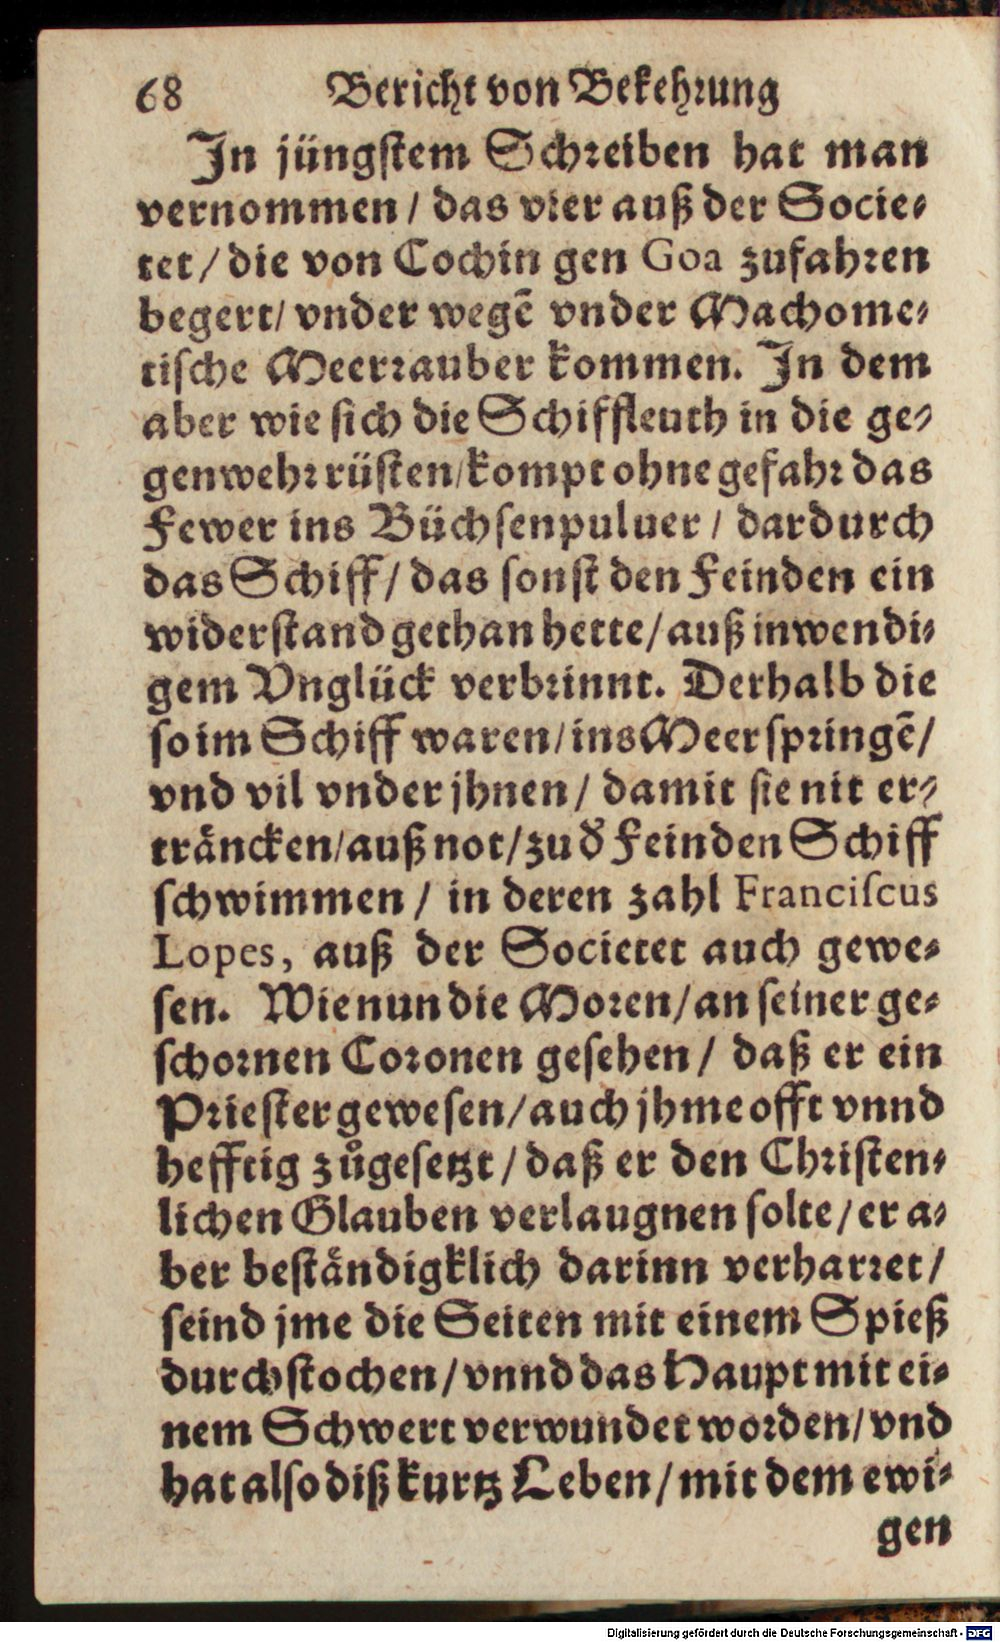 68 Bericht von Bekehrung
In jüngstem Schreiben hat man
vernommen / das vier auß der Socie-
tet / die von Cochin gen Goa zufahren
begert / vnder wegē vnder Machome-
tische Meerrauber kommen. In dem
aber wie sich die Schiffleuth in die ge-
genwehr rüsten / kompt ohne gefahr das
Fewer ins Büchsenpuluer / dardurch
das Schiff / das sonst den Feinden ein
widerstand gethan hette / auß inwendi-
gem Vnglück verbrinnt. Derhalb die
so im Schiff waren / ins Meer springē /
vnd vil vnder jhnen / damit sie nit er-
träncken / auß not / zu d̕ Feinden Schiff
schwimmen / in deren zahl Franciscus
Lopes, auß der Societet auch gewe-
sen. Wie nun die Moren / an seiner ge-
schornen Coronen gesehen / daß er ein
Priester gewesen / auch jhme offt vnnd
hefftig zůgesetzt / daß er den Christen-
lichen Glauben verlaugnen solte / er a-
ber beständigklich darinn verharret /
seind jme die Seiten mit einem Spieß
durchstochen / vnnd das Haupt mit ei-
nem Schwert verwundet worden / vnd
hat also diß kurtz Leben / mit dem ewi-
gen
Digitalisierung gefördert durch die Deutsche Forschungsgemeinschaft - DFG